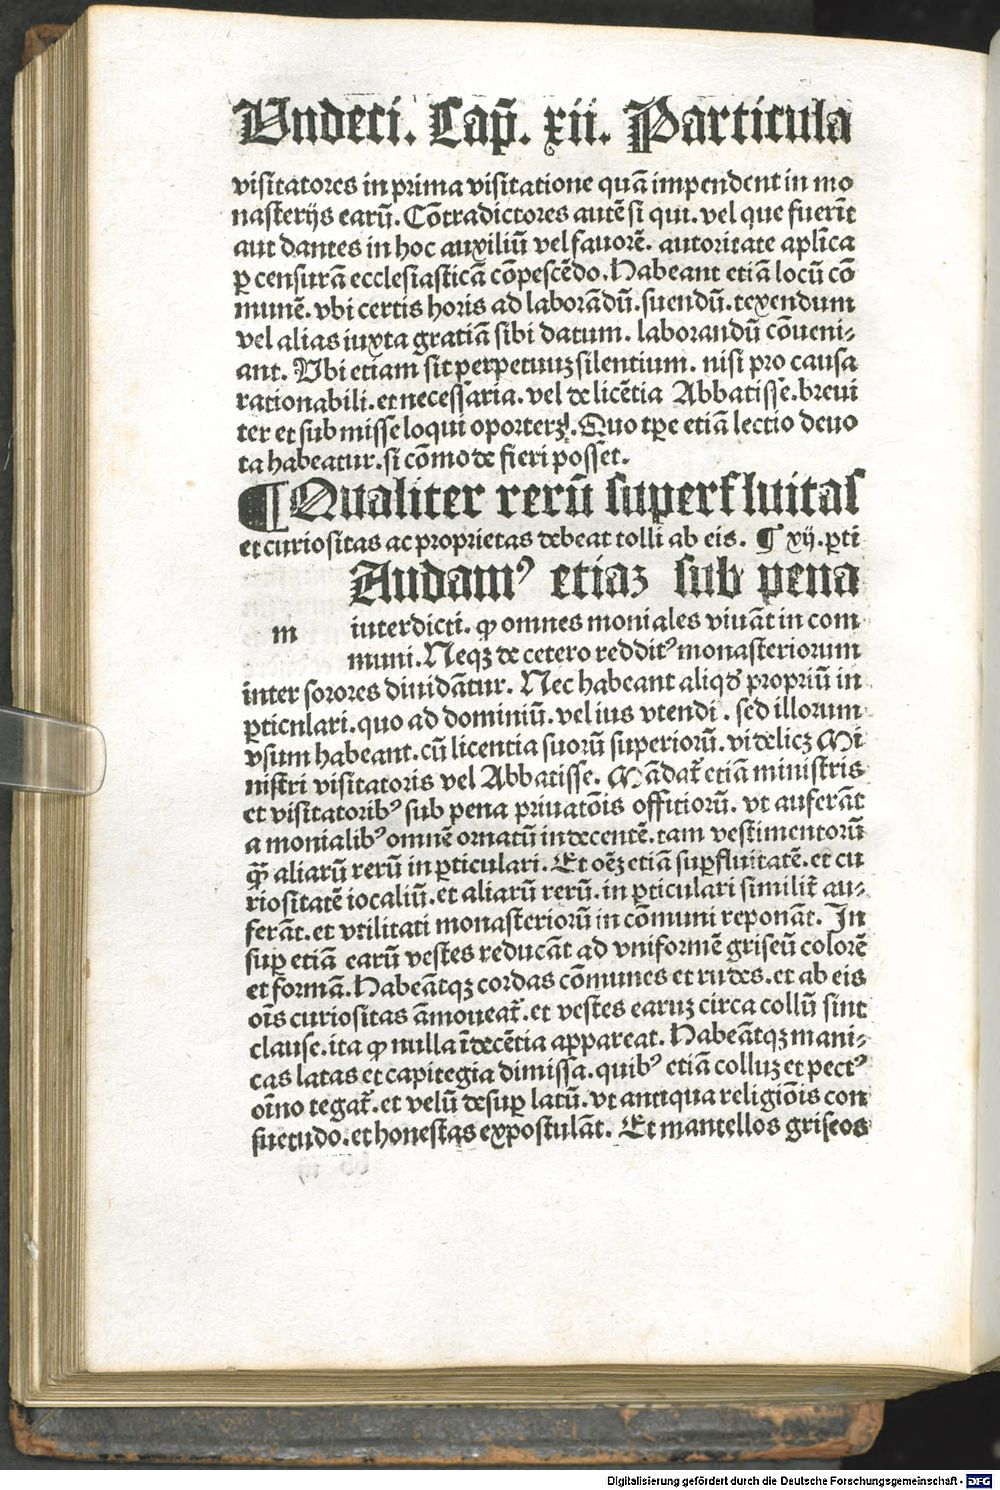 Vndeci. Cap̃. xii. Particula
visitatores in prima visitatione quā impendent in mo
nasterijs earū. Cōtradictores autē si qui. vel que fuerīt
aut dantes in hoc auxiliū vel fauorē. autoritate aplīca
ꝑ censurā ecclesiasticā cōpescēdo. Habeant etiā locū cō
munē. vbi certis horis ad laborādū. suendū. texendum
vel alias iuxta gratiā sibi datum. laborandū cōueni⸗
ant. Vbi etiam sit perpetuuꝫ silentium. nisi pro causa
rationabili. et necessaria. vel de licētia Abbatisse. breui
ter et submisse loqui oporterꝫ. Quo tꝑe etiā lectio deuo
ta habeatur. si cōmode fieri posset.
¶ Qualiter rerū superfluitas
et curiositas ac proprietas debeat tolli ab eis. ¶ xij. ꝑti
Andamꝰ etiaꝫ sub pena
m interdicti. ꝙ omnes moniales viuāt in com
muni. Neqꝫ de cetero redditꝰ monasteriorum
inter sorores diuidātur. Nec habeant aliqď propriū in
ꝑticulari. quo ad dominiū. vel ius vtendi. sed illorum
vsum habeant. cū licentia suorū superiorū. videlicꝫ Mi
nistri visitatoris vel Abbatisse. Mādat̄ etiā ministris
et visitatoribꝰ sub pena priuatōis offitiorū. vt auferāt
a monialibꝰ omnē ornatū indecentē. tam vestimentorū
ꝙ̄ aliarū rerū in ꝑticulari. Et oēꝫ etiā suꝑfluitatē. et cu
riositatē iocaliū. et aliarū rerū. in ꝑticulari similit̄ au⸗
ferāt. et vtilitati monasteriorū in cōmuni reponāt. In
suꝑ etiā earū vestes reducāt ad vniformē griseū colorē
et formā. Habeātqꝫ cordas cōmunes et rudes. et ab eis
oīs curiositas āmoueat̄. et vestes earuꝫ circa collū sint
clause. ita ꝙ nulla īdecētia appareat. Habeātqꝫ mani⸗
cas latas et capitegia dimissa. quibꝰ etiā colluꝫ et pectꝰ
oīno tegat̄. et velū desuꝑ latū. vt antiqua religiōis con
suetudo. et honestas expostulāt. Et mantellos griseos
Digitalisierung gefördert durch die Deutsche Forschungsgemeinschaft - DFG